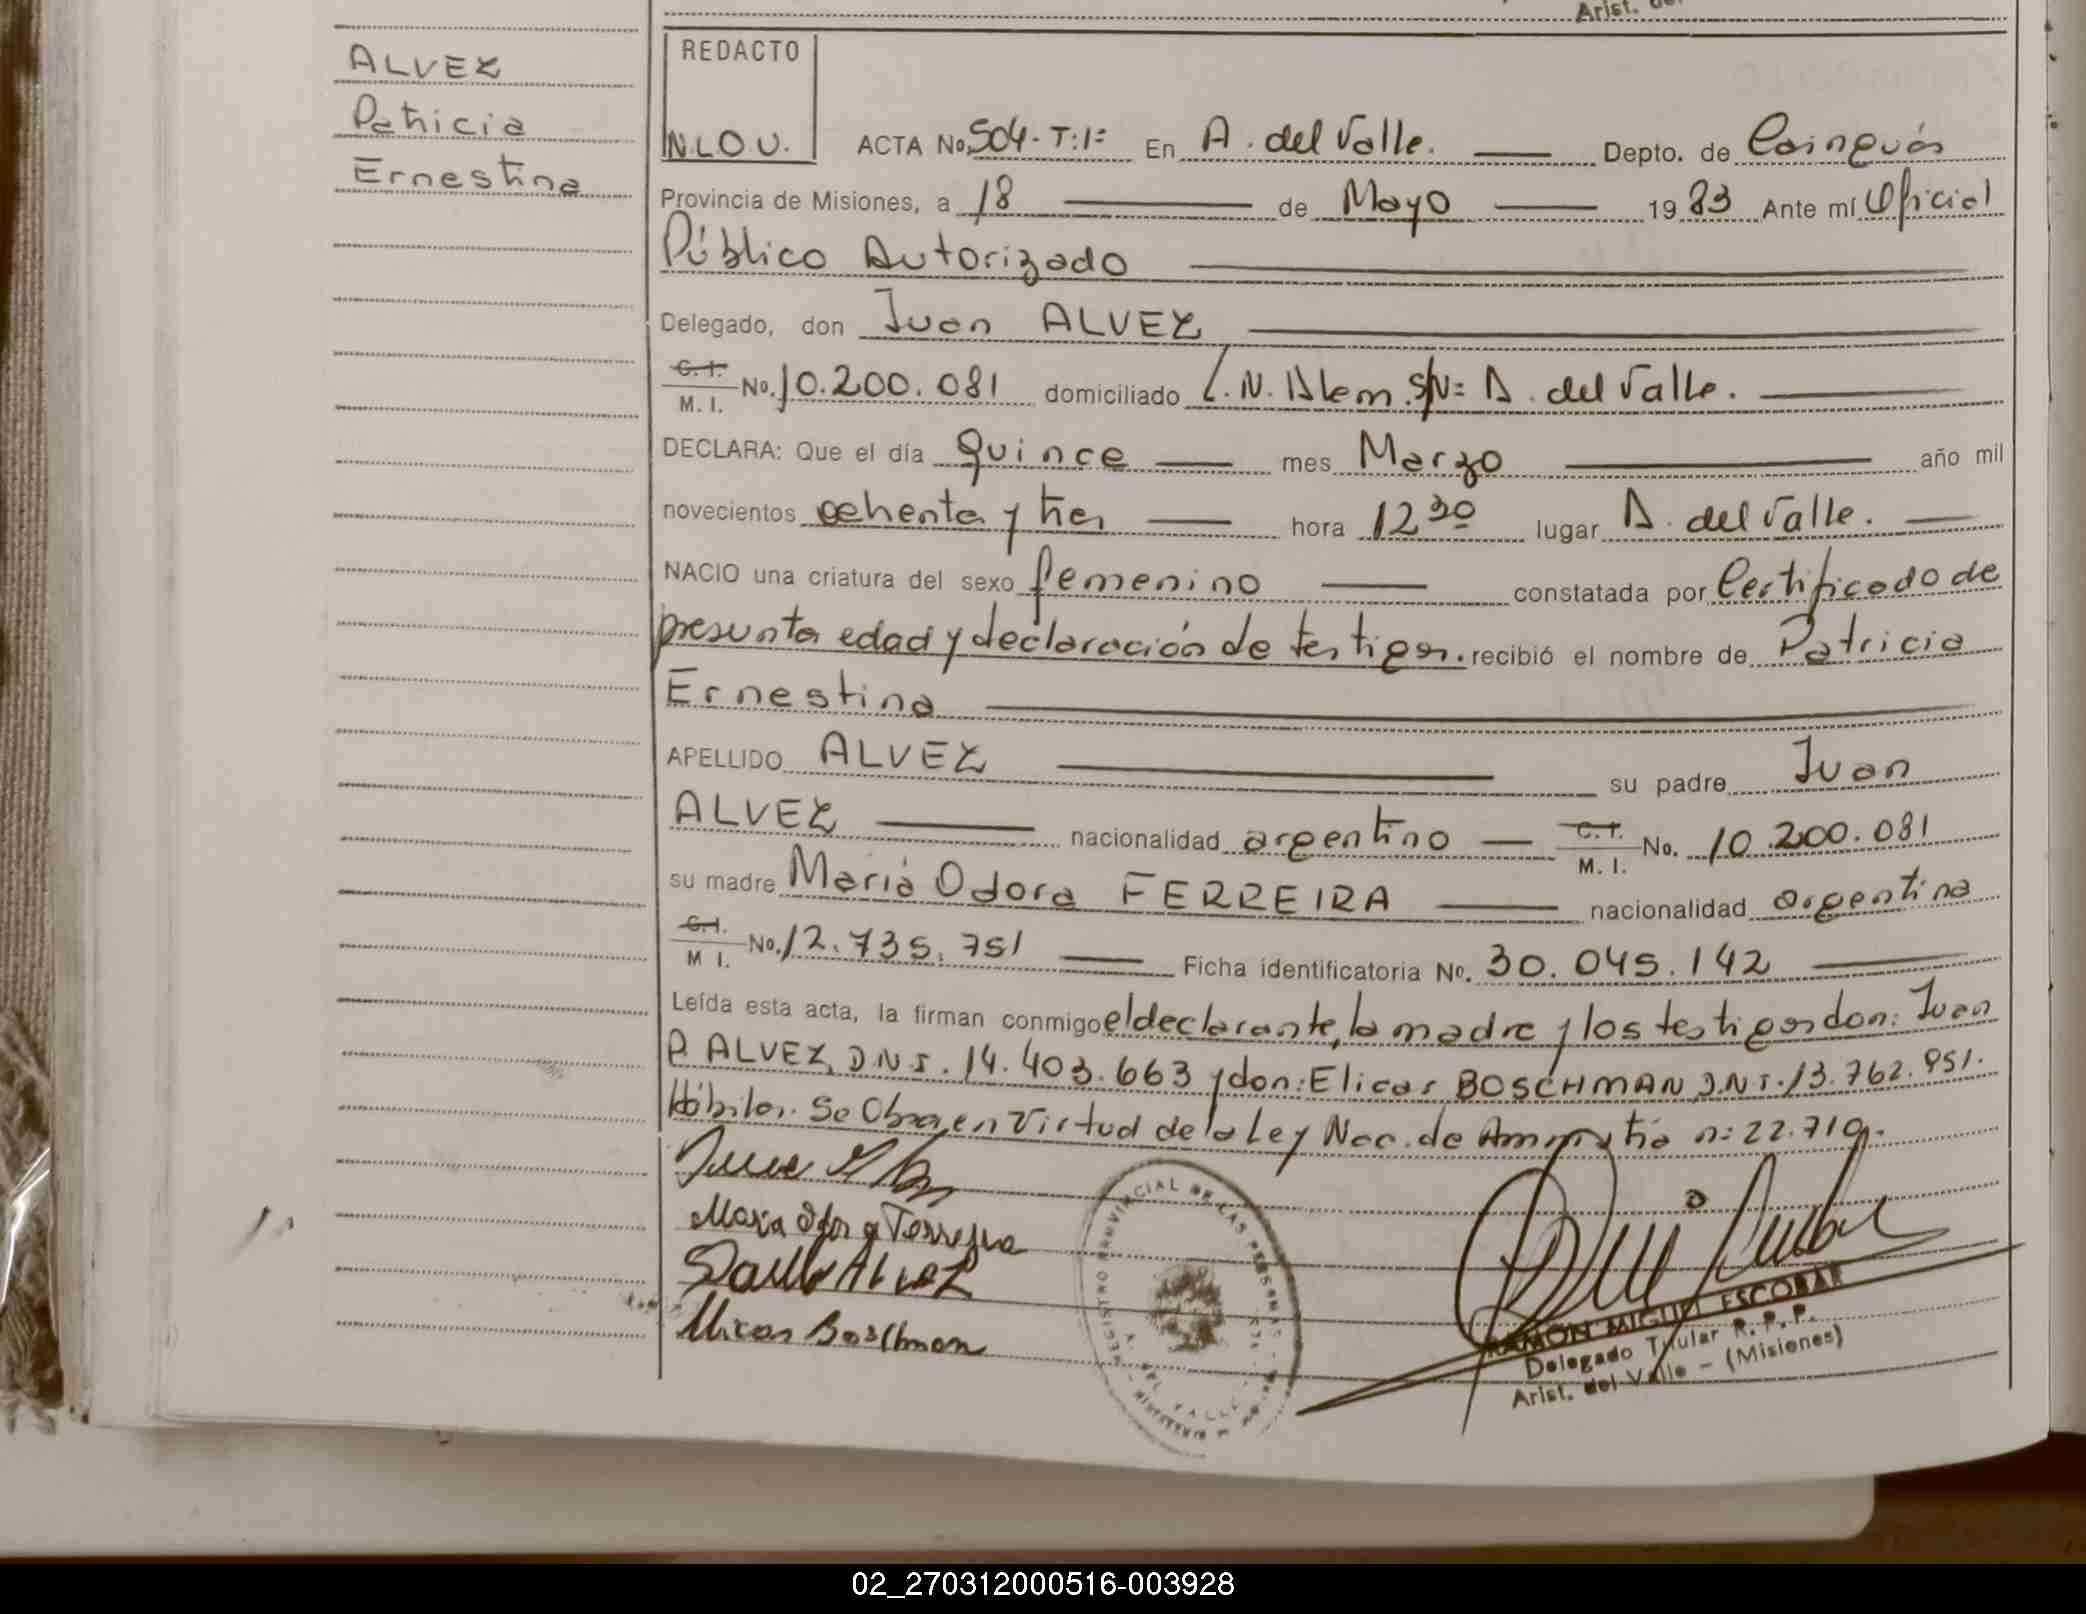 Arist. de
ALVEZ
Patricia
Ernestina
REDACTO
N.L.O.U.
ACTA No. 504. T:1: En A. del Valle. Depto. de Cainguás
Provincia de Misiones, a 18 de Mayo 1983 Ante mí Oficial
Público Autorizado
Delegado, don Juan ALVEZ
C. I.
M. I. No. 10.200.081 domiciliado L. N. Alem. S/N= A. del Valle.
DECLARA: Que el día quince mes Marzo año mil
novecientos ochenta y tres hora 12 30 lugar A. del Valle.
NACIO una criatura del sexo femenino constatada por Certificado de
presunta edad y declaración de testigos. recibió el nombre de Patricia
Ernestina
APELLIDO ALVEZ su padre Juan
ALVEZ nacionalidad argentino C. I. M. I. No. 10.200.081
su madre Maria Odora FERREIRA nacionalidad argentina
C. I.
M I. No. 12.735.751 Ficha identificatoria No. 30.045.142
Leída esta acta, la firman conmigo el declarante, la madre y los testigos don: Juan
P. ALVEZ, D.N.I. 14.403.663 y don: Elicas BOSCHMAN D.N.I. 13.762.951.
Hábiles. Se Obra en Virtud de la Ley Nac. de Amnistia n: 22.719.
ALVEZ
Boschman
RAMON MIGUEL ESCOBAR
Delegado Titular R. P. P.
Arist. del Valle - (Misiones)
02_270312000516-003928